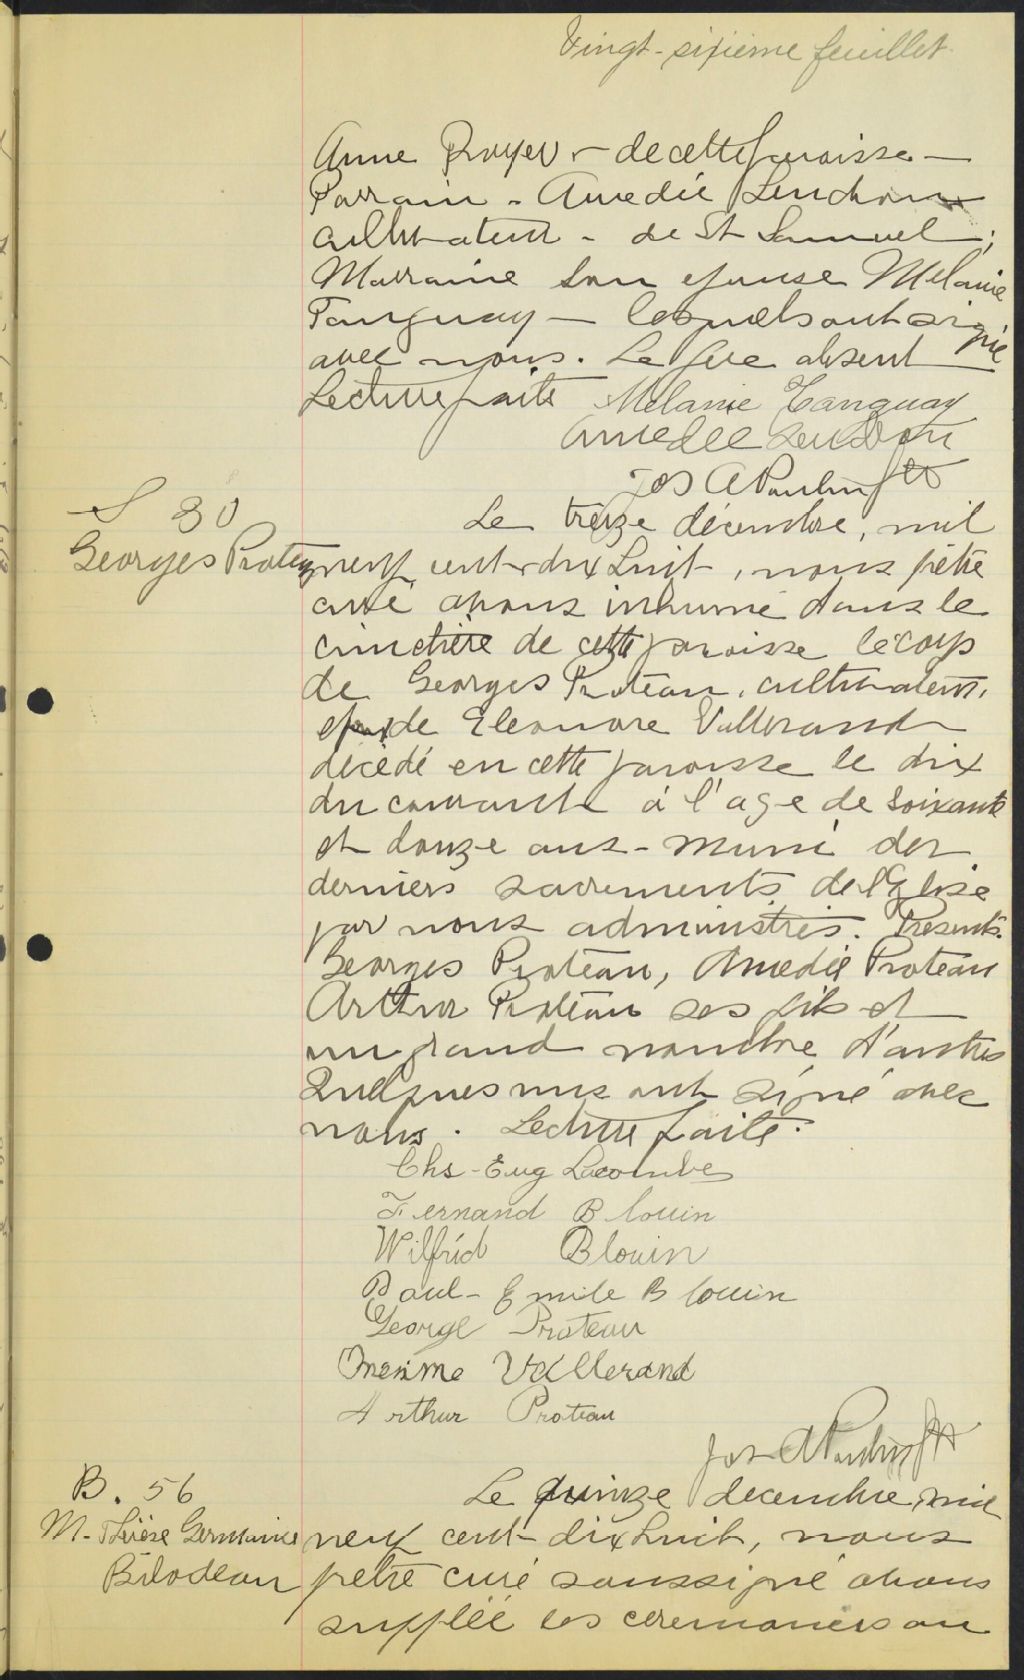 Vingt-sixième feuillet
Anne Royer - de cette paroisse -
Parrain - Amedée Gendron
cultivateur - de St Samuel;
Marraine son epouse Mélanie
Tanguay - lesquels ont signé
avec nous. Le père absent
Lecture faite Mélanie Tanguay
Amedee Gendron
Jos A Poulin ptr
S 30
Georges Proteau
Le treize décembre, mil
neuf cent dix huit, nous prêtre
curé avons inhumé dans le
cimetière de cette paroisse le corps
de Georges Proteau, cultivateur,
epx de Eleonore Vallerand
décédé en cette paroisse le dix
du courant à l'age de soixante
et douze ans - muni des
derniers sacrements de l'Eglise
par nous administrés. Présents
Georges Proteau, Amedée Proteau
Arthur Proteau ses fils et
un grand nombre d'autres
Quelques uns ont signé avec
nous. Lecture faite.
Chs-Eug Lacombe
Fernand Blouin
Wilfrid Blouin
Paul-Emile Blouin
George Proteau
Vallerand
Arthur Proteau
Jos A Poulin ptr
B. 56
M. Thérèse Germaine
Bilodeau
Le quinze decembre mil
neuf cent dix huit, nous
prêtre curé soussigné avons
supplée les ceremonies au